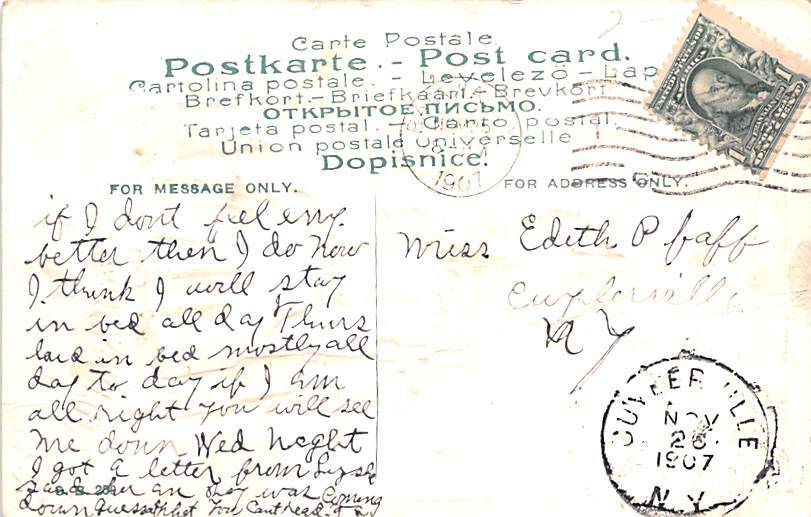 Carte Postale.
Postkarte. - Post card.
Cartolina postale. - Levelező - Lap
Brefkort. - Briefkaart. - Brevkort
ОТКРЫТОЕ ПИСЬМО.
Tarjeta postal. - Carto postal.
Union postale universelle
Dopisnice.
1907
FOR MESSAGE ONLY.
FOR ADDRESS ONLY.
if I dont feel eny
better then I do now
I think I will stay
in bed all day Thurs
laid in bed mostly all
day to day if I am
all right you will see
me down Wed Neght
I got a letter from
an they was coming
down guess you cant read
Miss Edith Pfaff
Cuylerville
N Y
CUYLERVILLE
NOV
26
1907
N.Y.